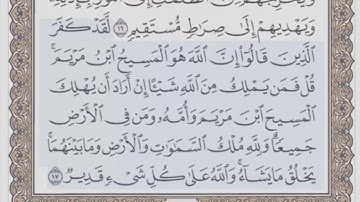 وَيَهْدِيهِمْ إِلَىٰ صِرَٰطٍ مُّسْتَقِيمٍ ١٦ لَّقَدْ كَفَرَ
ٱلَّذِينَ قَالُوٓا۟ إِنَّ ٱللَّهَ هُوَ ٱلْمَسِيحُ ٱبْنُ مَرْيَمَ ۚ
قُلْ فَمَن يَمْلِكُ مِنَ ٱللَّهِ شَيْـًٔا إِنْ أَرَادَ أَن يُهْلِكَ
ٱلْمَسِيحَ ٱبْنَ مَرْيَمَ وَأُمَّهُۥ وَمَن فِى ٱلْأَرْضِ
جَمِيعًا ۗ وَلِلَّهِ مُلْكُ ٱلسَّمَٰوَٰتِ وَٱلْأَرْضِ وَمَا بَيْنَهُمَا ۚ
يَخْلُقُ مَا يَشَآءُ ۚ وَٱللَّهُ عَلَىٰ كُلِّ شَىْءٍ قَدِيرٌ ١٧